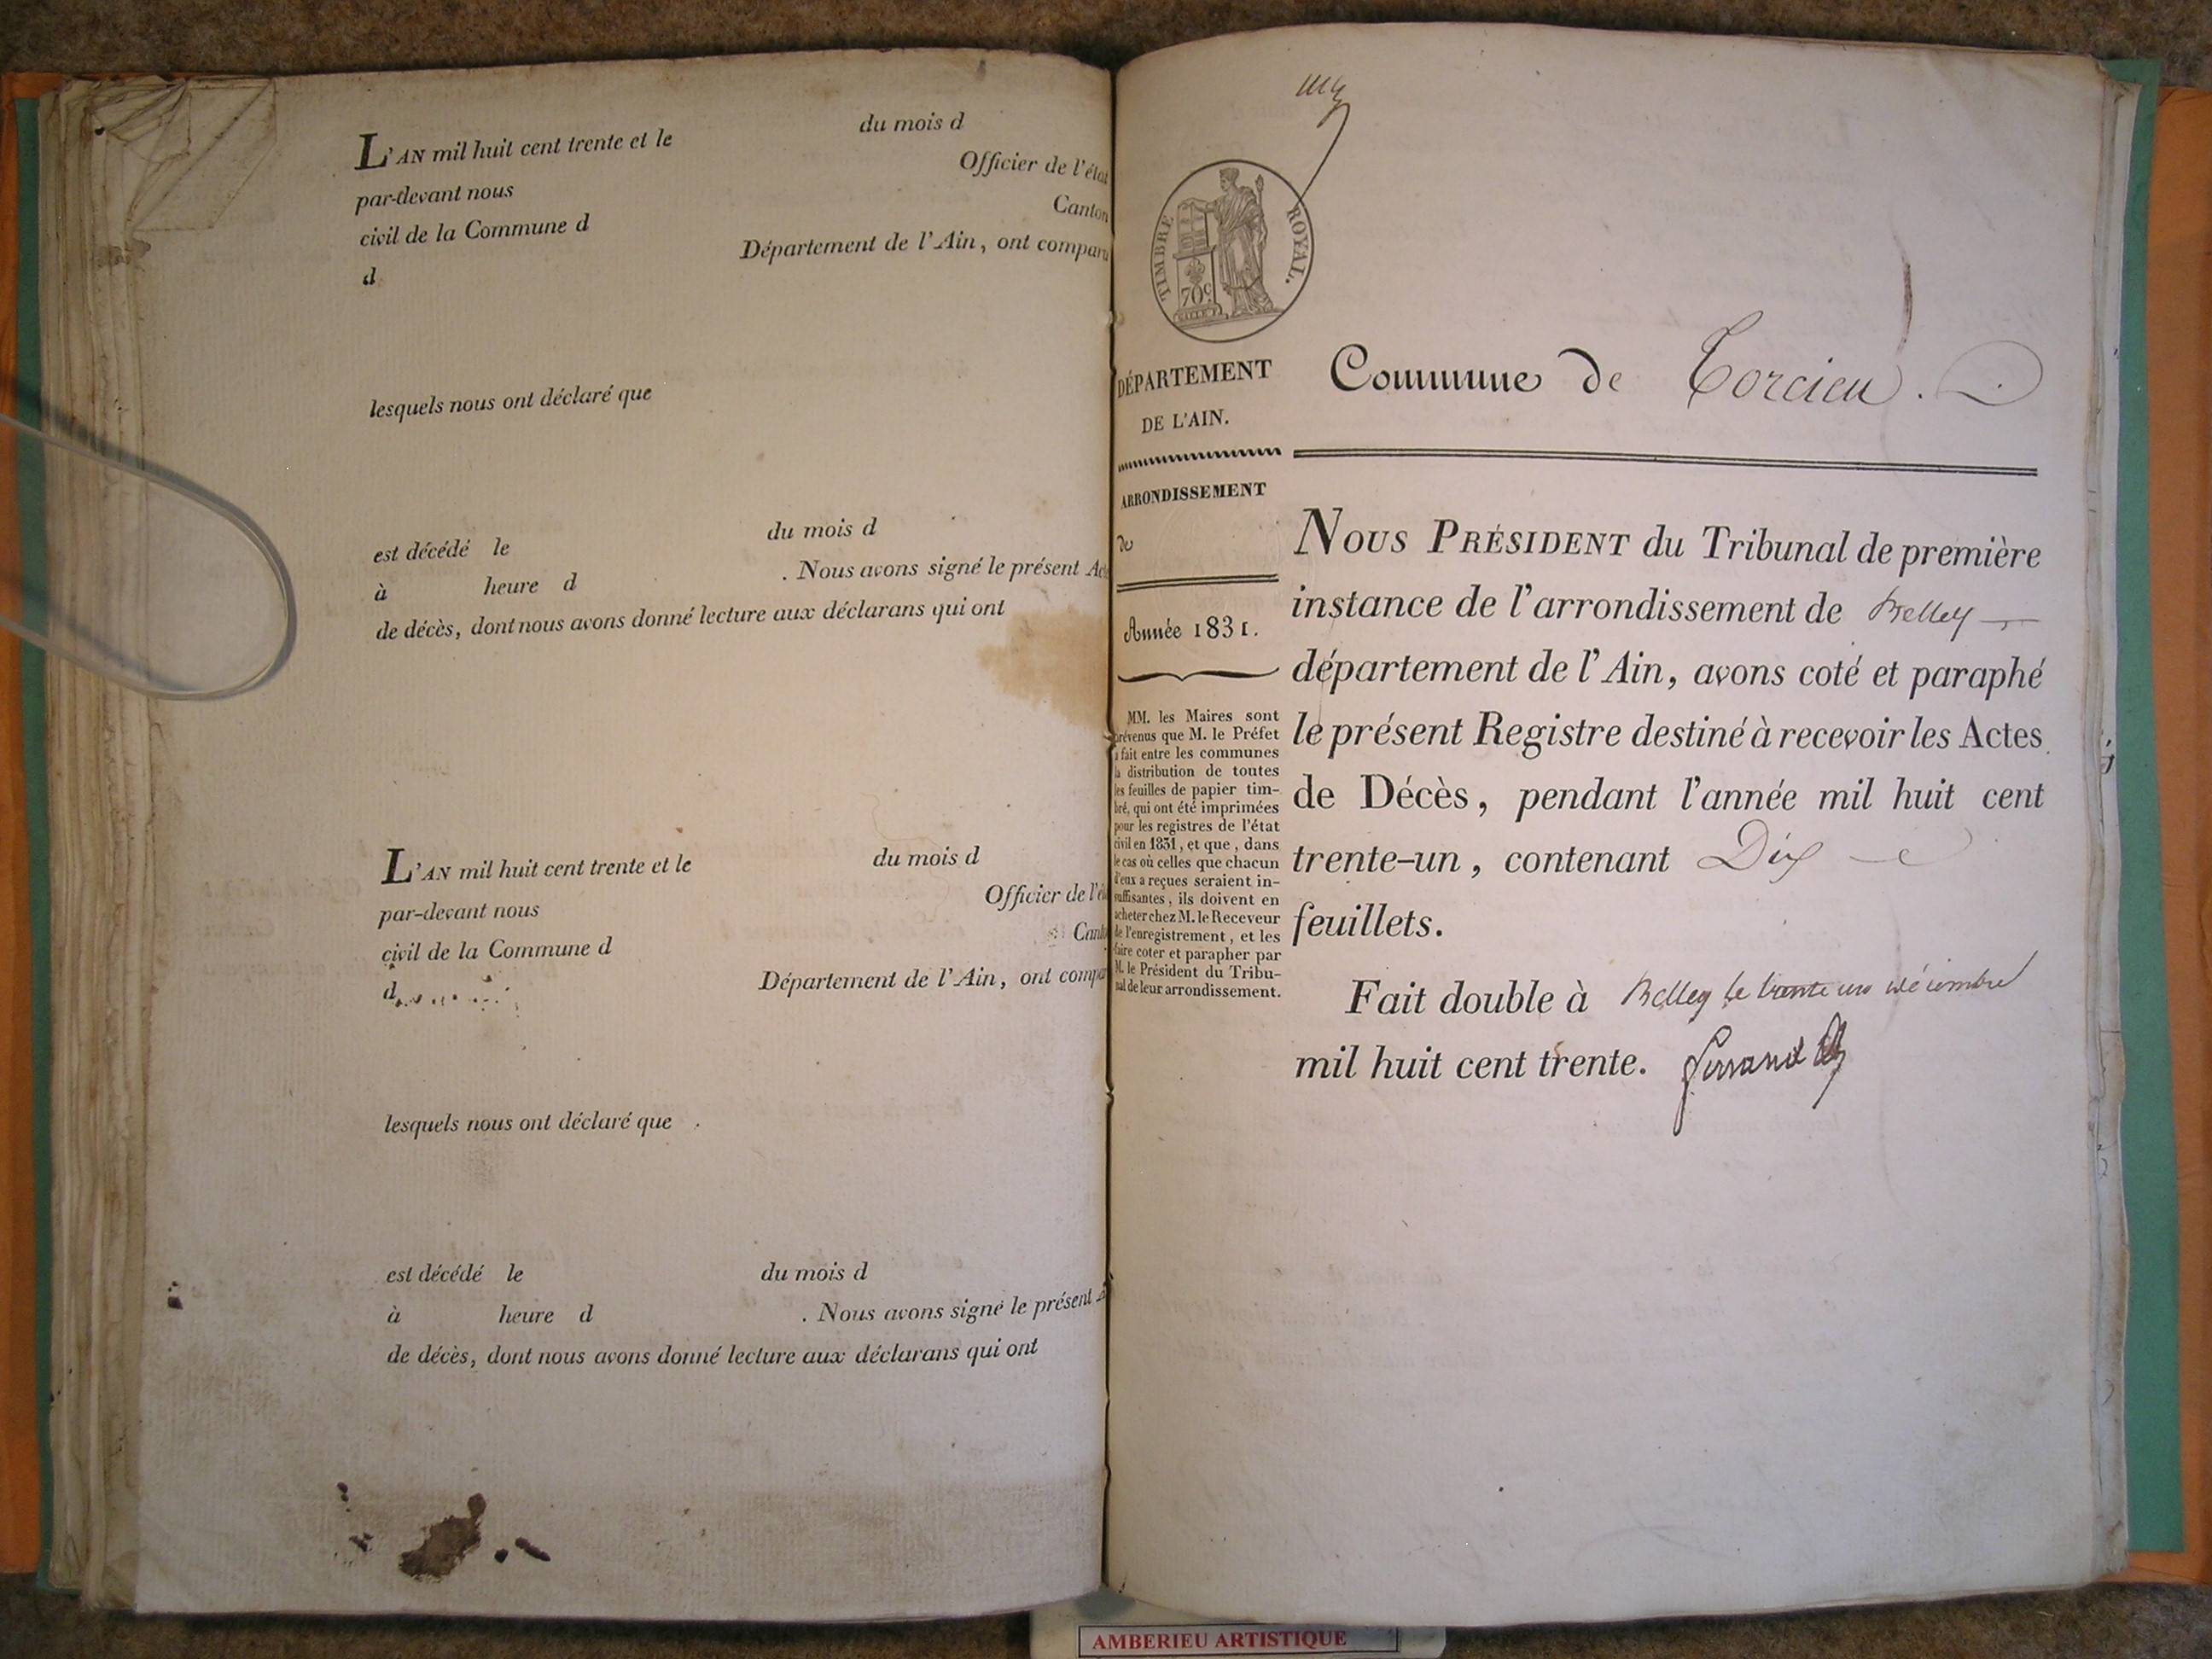 L'AN mil huit cent trente et le du mois d
par-devant nous Officier de l'état
civil de la Commune d Canton
d Département de l'Ain, ont comparu
lesquels nous ont déclaré que
est décédé le du mois d
à heure d . Nous avons signé le présent Ac
de décès, dont nous avons donné lecture aux déclarans qui ont
L'AN mil huit cent trente et le du mois d
par-devant nous Officier de l'é
civil de la Commune d Canto
d Département de l'Ain, ont compa
lesquels nous ont déclaré que
est décédé le du mois d
à heure d . Nous avons signé le présent A
de décès, dont nous avons donné lecture aux déclarans qui ont
TIMBRE ROYAL.
70c
DÉPARTEMENT
DE L'AIN.
ARRONDISSEMENT
de
Année 1831.
MM. les Maires sont
prévenus que M. le Préfet
a fait entre les communes
la distribution de toutes
les feuilles de papier tim-
bré, qui ont été imprimées
pour les registres de l'état
civil en 1831, et que, dans
le cas où celles que chacun
d'eux a reçues seraient in-
suffisantes, ils doivent en
acheter chez M. le Receveur
de l'enregistrement, et les
faire coter et parapher par
M. le Président du Tribu-
nal de leur arrondissement.
Commune de Torcieu.
NOUS PRÉSIDENT du Tribunal de première
instance de l'arrondissement de Belley
département de l'Ain, avons coté et paraphé
le présent Registre destiné à recevoir les Actes
de Décès, pendant l'année mil huit cent
trente-un, contenant Dix
feuillets.
Fait double à Belley le trente un décembre
mil huit cent trente.
AMBERIEU ARTISTIQUE